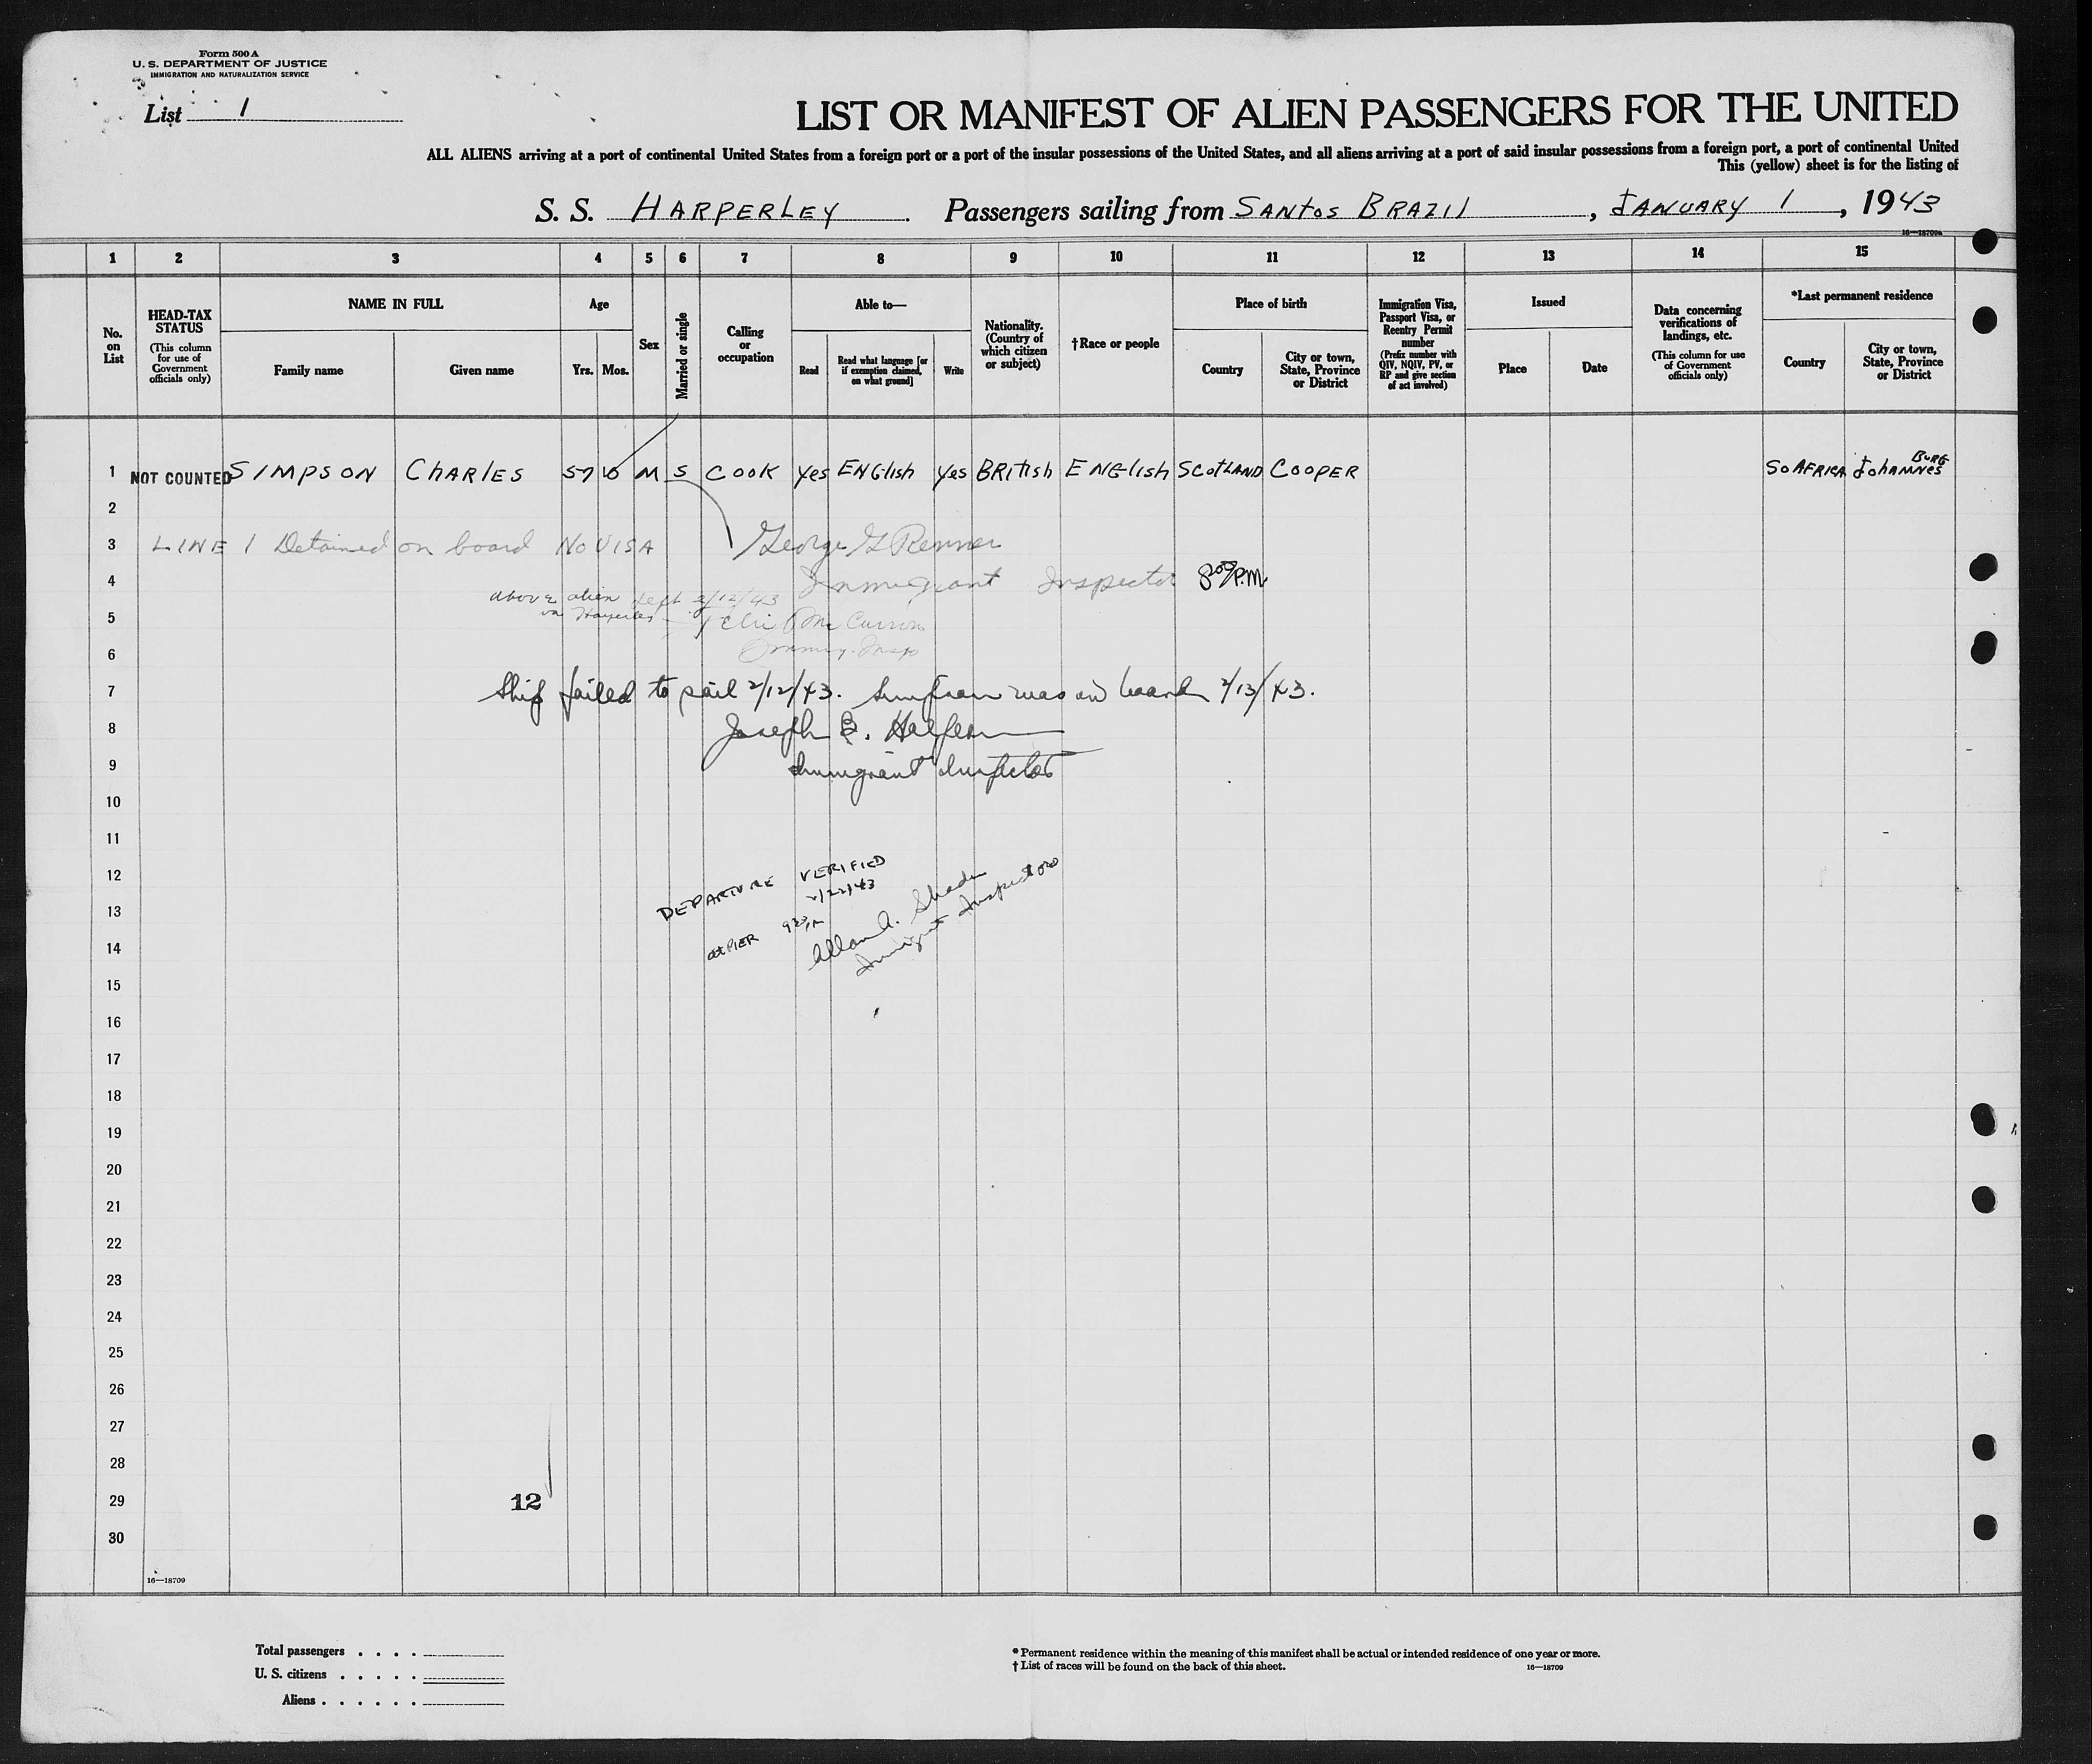 Form 500 A
U. S. DEPARTMENT OF JUSTICE
IMMIGRATION AND NATURALIZATION SERVICE
List 1
LIST OR MANIFEST OF ALIEN PASSENGERS FOR THE UNITED
ALL ALIENS arriving at a port of continental United States from a foreign port or a port of the insular possessions of the United States, and all aliens arriving at a port of said insular possessions from a foreign port, a port of continental United
This (yellow) sheet is for the listing of
S. S. HARPERLEY Passengers sailing from SANTOS BRAZIL, JANUARY 1, 1943
16—18709a
1 2 3 4 5 6 7 8 9 10 11 12 13 14 15
No. on List
HEAD-TAX STATUS (This column for use of Government officials only)
NAME IN FULL
Family name Given name
Age
Yrs. Mos.
Sex
Married or single
Calling or occupation
Able to—
Read Read what language [or if exemption claimed, on what ground] Write
Nationality. (Country of which citizen or subject)
†Race or people
Place of birth
Country City or town, State, Province or District
Immigration Visa, Passport Visa, or Reentry Permit number (Prefix number with QIV, NQIV, PV, or RP and give section of act involved)
Issued
Place Date
Data concerning verifications of landings, etc. (This column for use of Government officials only)
*Last permanent residence
Country City or town, State, Province or District
1 NOT COUNTED SIMPSON CHARLES 57 M S COOK yes ENGlish yes BRitish ENGlish SCOTLAND COOPER So AFRICA JohANNESBURG
2
3 LINE 1 Detained on board No VISA George G Renner
4 Immigrant Inspector 8:00 P.M.
above alien left 2/12/43
5 on Harperley
6 Immig. Insp
7 Ship failed to sail 2/12/43. Simpson was on board 2/13/43.
8 Joseph B.
9 Immigrant Inspector
10
11
12 DEPARTURE VERIFIED
13 2/22/43
14 at PIER Allan A. Shader
Immigrant Inspector
15
16
17
18
19
20
21
22
23
24
25
26
27
28
29 12
30
16—18709
Total passengers . . . .
U. S. citizens . . . . .
Aliens . . . . . .
* Permanent residence within the meaning of this manifest shall be actual or intended residence of one year or more.
† List of races will be found on the back of this sheet.
16—18709